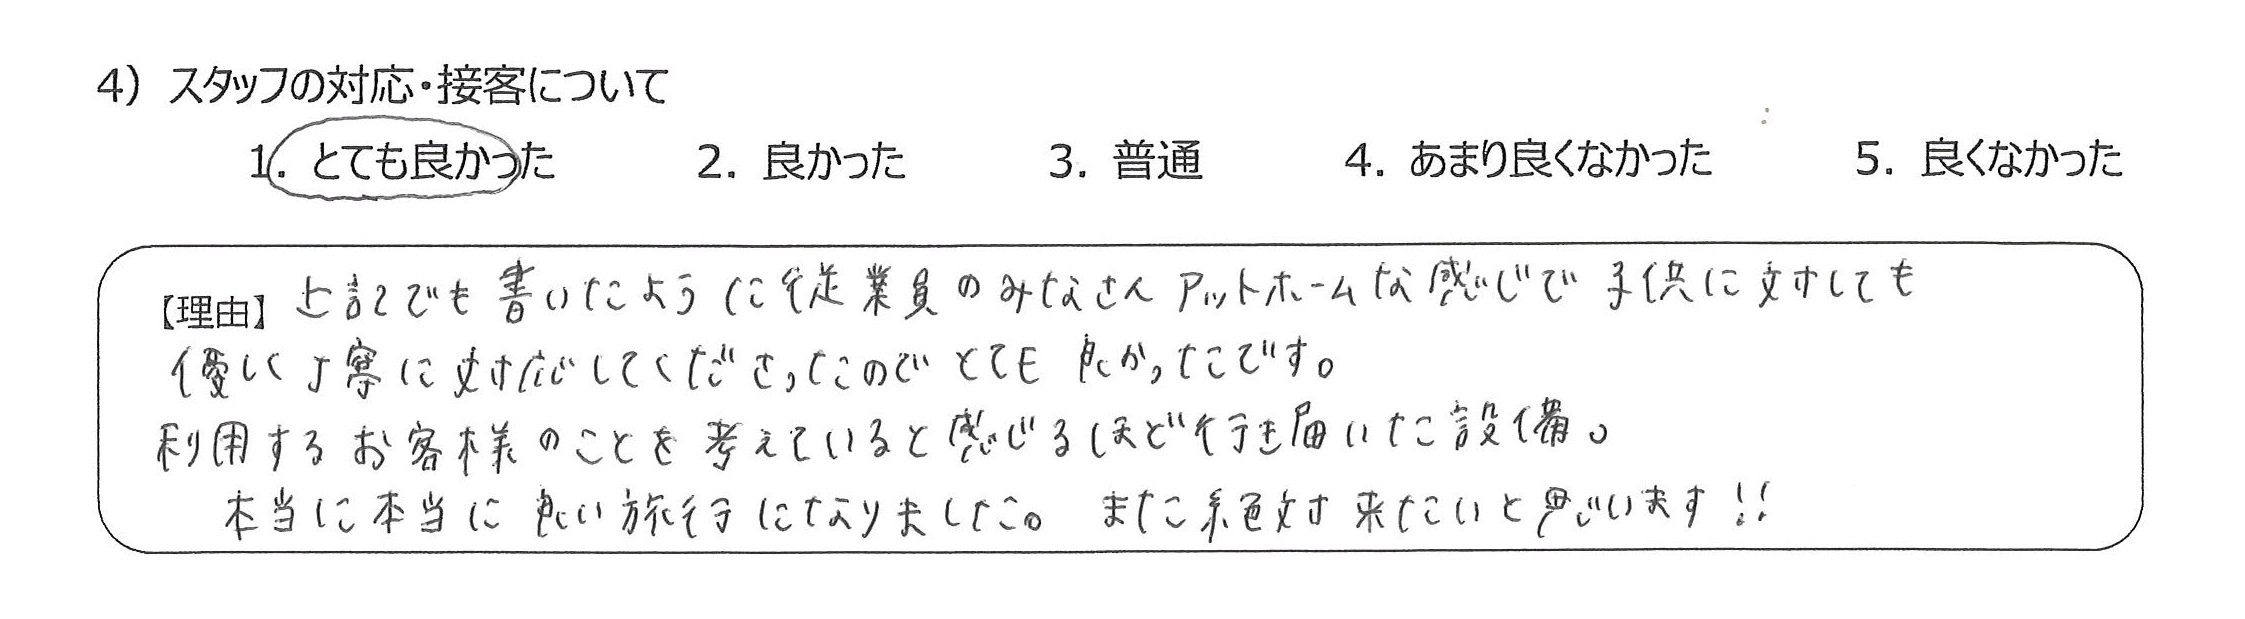 4) スタッフの対応・接客について
1. とても良かった 2. 良かった 3. 普通 4. あまり良くなかった 5. 良くなかった
【理由】上記でも書いたように従業員のみなさんアットホームな感じで子供に対しても
優しく丁寧に対応してくださったのでとても良かったです。
利用するお客様のことを考えていると感じるほど行き届いた設備。
本当に本当に良い旅行になりました。また絶対来たいと思います!!